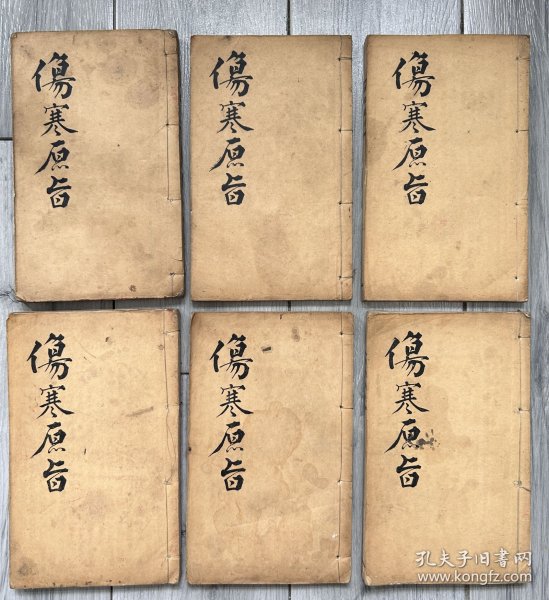 傷寒原旨
傷寒原旨
傷寒原旨
傷寒原旨
傷寒原旨
傷寒原旨
孔夫子旧书网
www.kongfz.com